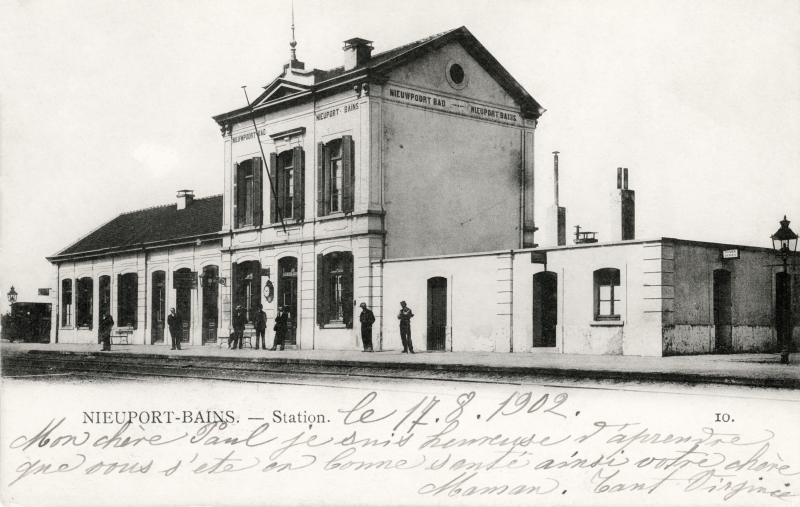 NIEUWPOORT BAD
NIEUPORT-BAINS
NIEUWPOORT BAD — NIEUPORT-BAINS
NIEUPORT-BAINS. — Station. le 17.8.1902.
10.
Mon chère Paul je suis heureuse d'aprendre
que vous s'ete en bonne santé ainsi votre chère
Maman. Tant Virginie